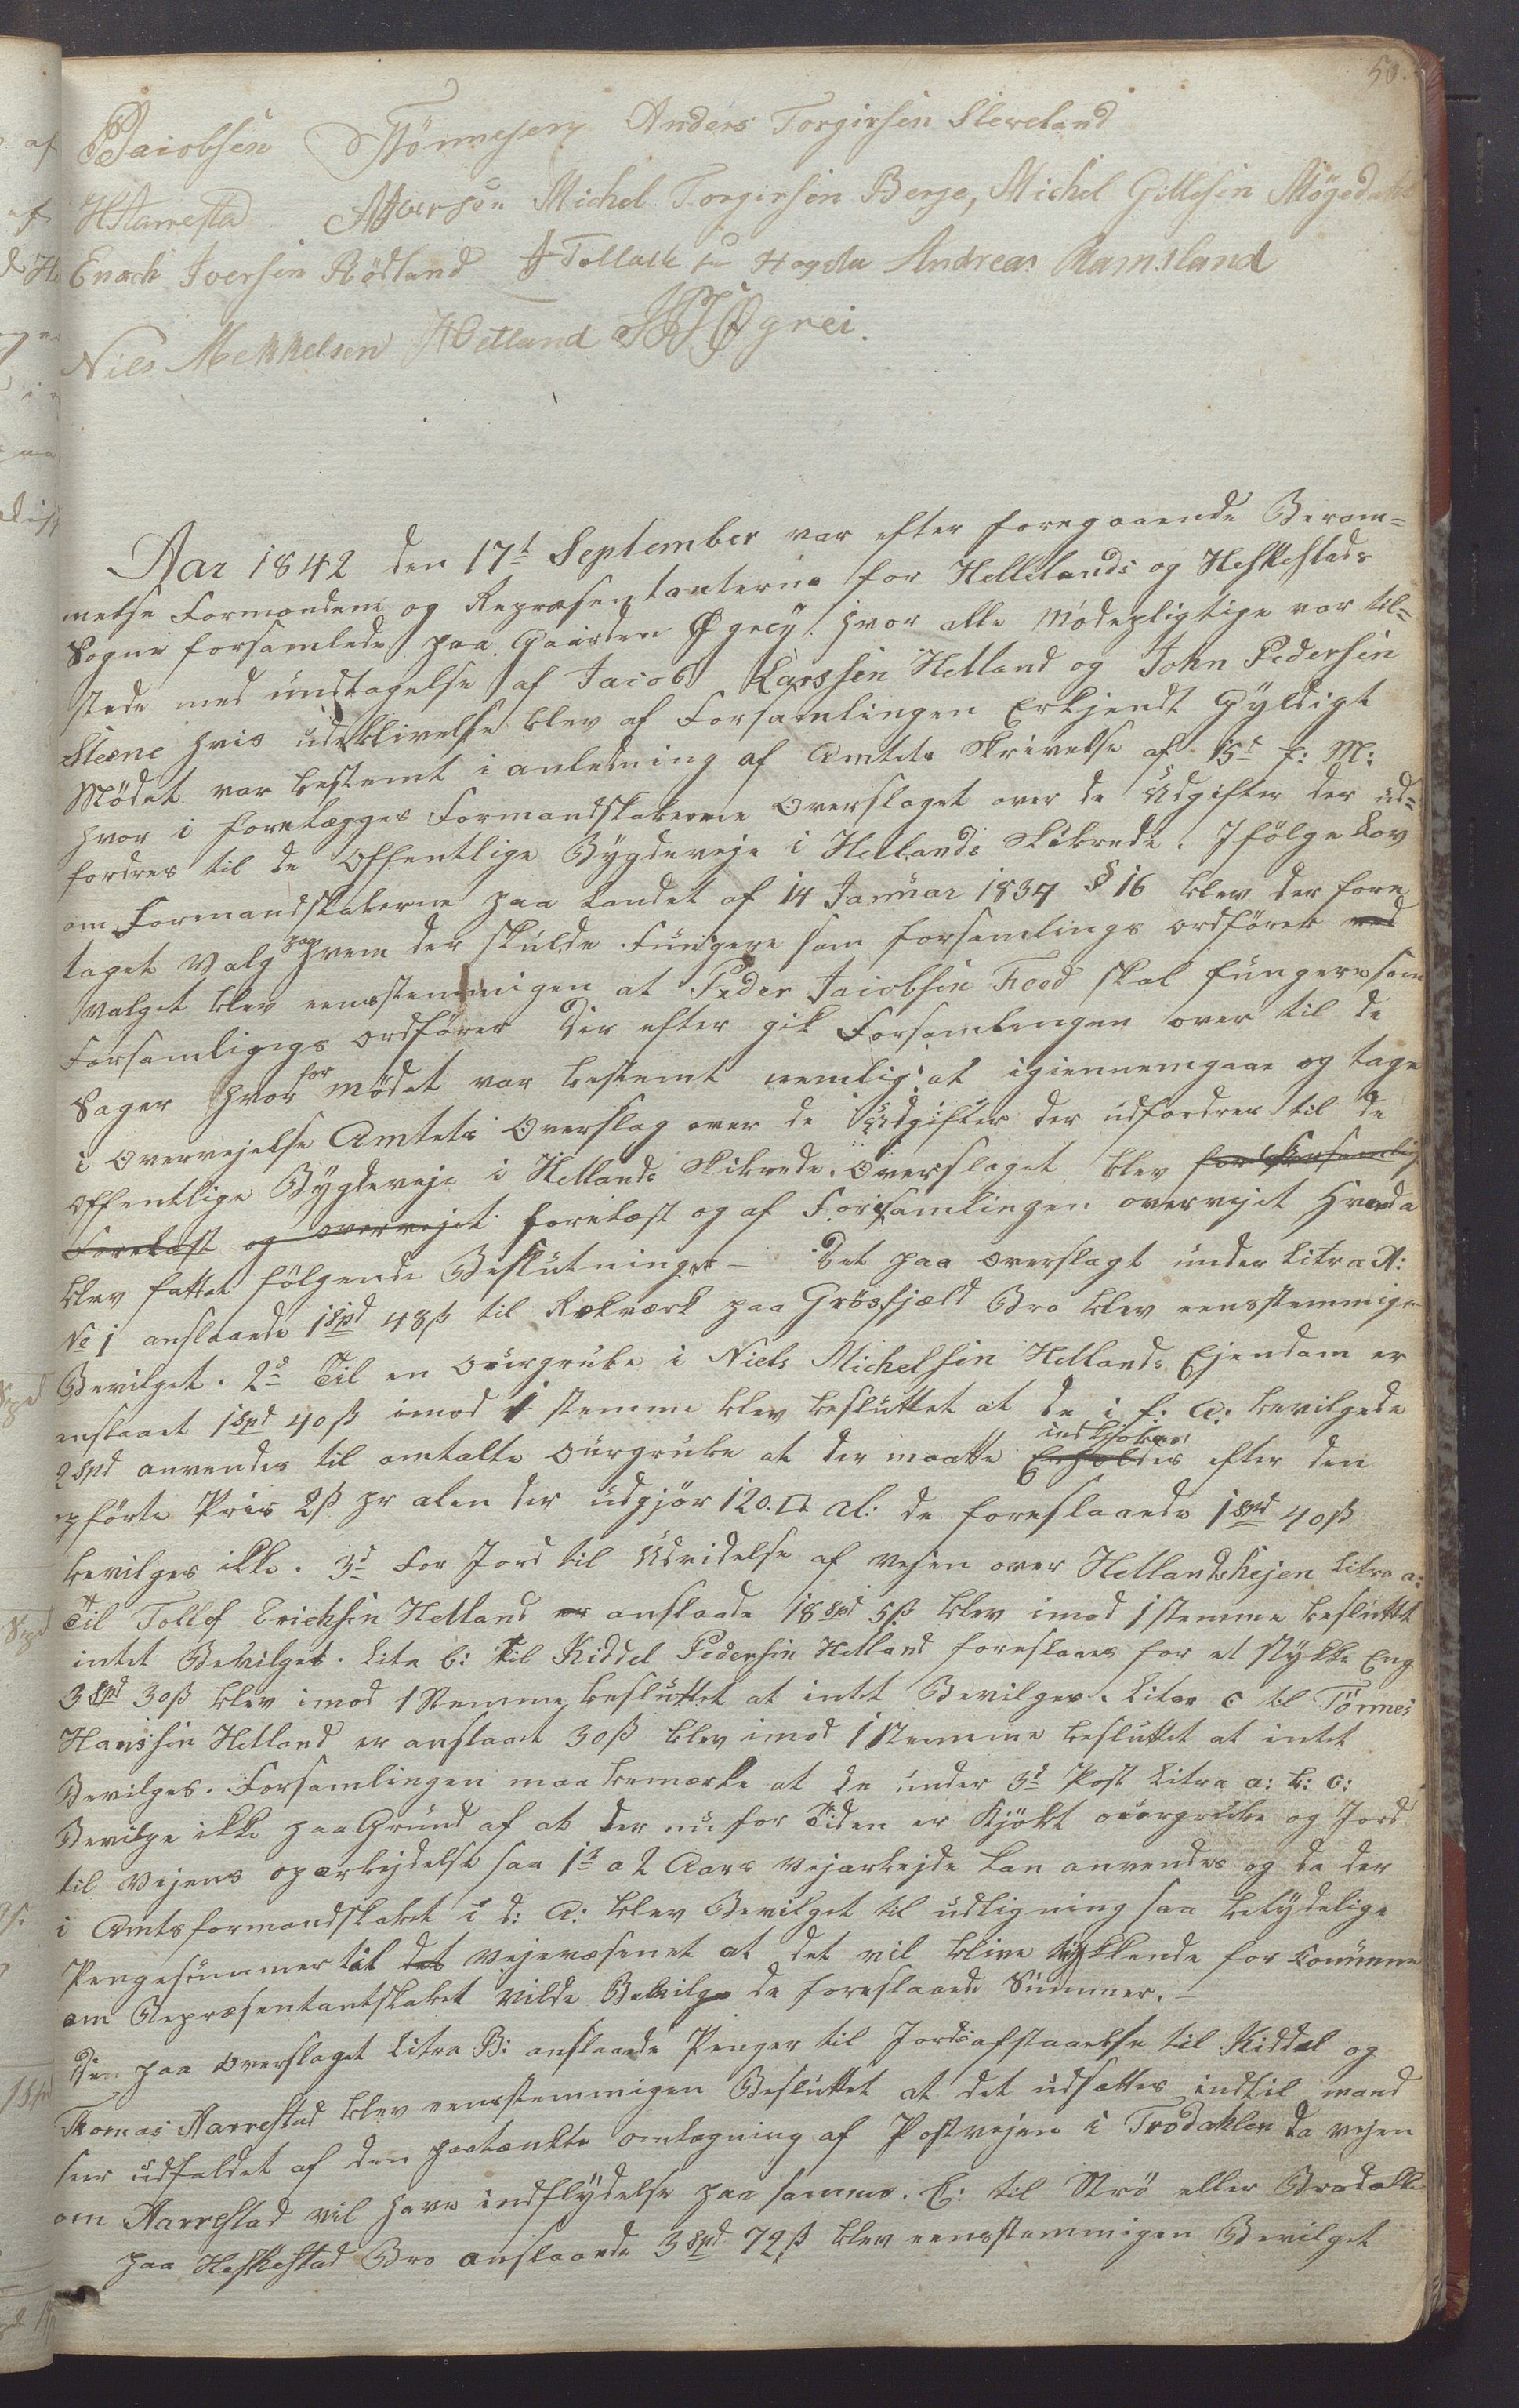 50.
PJacobsen TTönnesen Anders Torgirsen Sleveland
HHarrestad Michel Torgirsen Berge, Michel Gillesin Mögedahl
Enock Iversen Rödland Andreas Ramsland
Nils Mekkelsen Hetland Øgrei.
Aar 1842 den 17t September var efter foregaaende Beram=
melse Formændene og Repræsentanterne for Hellelands og Heskestads
Sogne forsamlede paa Gaarden Øgreÿ hvor alle Mödepligtige var til=
stede med undtagelse af Jacob Larssen Helland og John Pedersen
Steene hvis udeblivelse blev af Forsamlingen Erkjendt Gyldigt
Mödet var bestemt i anledning af Amtets Skrivelse af 15d f: M:
hvor i forelægges Formandskaberne Overslaget over de Udgifter der ud=
fordres til de Offentlige Bygdeveje i Hellands Skibrede. Ifölge Lov
om Formandskaberne paa Landet af 14 Januar 1837 § 16 blev der fore
taget Valg paa hvem der skulde fungere som forsamlings ordförer ved
valget blev eensstemmigen at Peder Jacobsen Feed skal fungere som
Forsamligngs ordförer Der efter gik Forsamlingen over til de
Sager hvor for mödet var bestemt nemlig: at igiennemgaae og tage
i Overvejelse Amtets Overslag over de Udgifter der udfordres til de
offentlige Bygdeveje i Hellands Skibrede. Overslaget blev for Forsamlig
Forelæst og overvejet forelæst og af Forsamlingen overvejet Hvorda
blev fattet fölgende Beslutninger – Det paa Overslagt under Litra A:
No 1 anslaaede 1 Spd 48 ß til Rekværk paa Grösfjæld Bro blev eensstemmigen
Bevilget. 2d Til en Ourgrube i Niels Michelsen Hellands Ejendom er
anslaaet 1 Spd 40 ß imod 1 stemme blev besluttet at de i f: A: bevilgede
2 Spd anvendes til omtalte Ourgrube at der maatte Erholdes indkjöbes efter den
opförte Pris 2 ß pr alen der udgjör 120 □ Al: de foreslaaede 1 Spd 40 ß
bevilges ikke. 3d For Jord til Udvidelse af Vejen over Hellandshejen Litra a:
Til Tollef Erichsen Helland er anslaade 18 Spd 5 ß blev imod 1 stemme besluttet
intet Bevilget. Litr b: Til Kiddel Pedersen Helland foreslaaes for et stykke Eng
3 Spd 30 ß blev imod 1 Stemme besluttet at intet Bevilges. Litra c til Tönnes
Hanssen Helland er anslaaet 30 ß blev imod 1 Stemme besluttet at intet
Bevilges. Forsamlingen maa bemærke at de under 3d Post Litra a: b: c:
Bevilge ikke paa Grund af at der nu for Tiden er kjöbt ourgrube og Jord
til Vejens oparbejdelse saa 1t a 2 Aars Vejarbejde kan anvendes og da der
i Amtsformandskabet i d: A: blev Bevilget til udligning saa betydelige
Pengesummer til det Vejevæsenet at det vil blive trykkende for Comunne
om Repræsentantskabet vilde Bevilge de foreslaaede Summer. –
Den paa Overslaget Litra B: anslaaede Penger til Jordsafstaaelse til Kiddel og
Thomas Harrestad blev eensstemmigen Besluttet at det udsættes indtil mand
seer udfaldet af den paatænkte omlægning af Postvejen i Trodahlen da vejen
om Harrestad vil have indflydelse paa samme. C: til Strö eller Brodække
paa Heskestad Bro anslaaede 3 Spd 72 ß blev eensstemmigen Bevilget